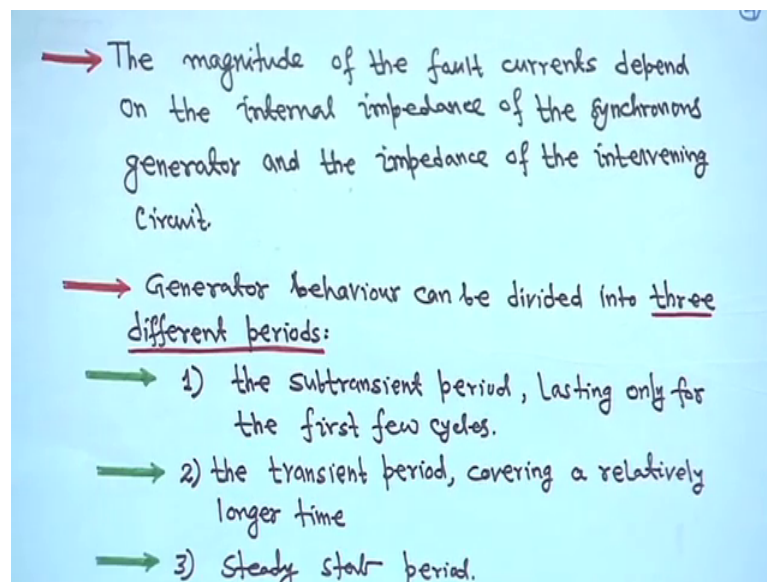 The magnitude of the fault currents depend
on the internal impedance of the synchronous
generator and the impedance of the intervening
circuit.
Generator behaviour can be divided into three
different periods:
1) the subtransient period, Lasting only for
the first few cycles.
2) the transient period, covering a relatively
longer time
3) Steady state period.